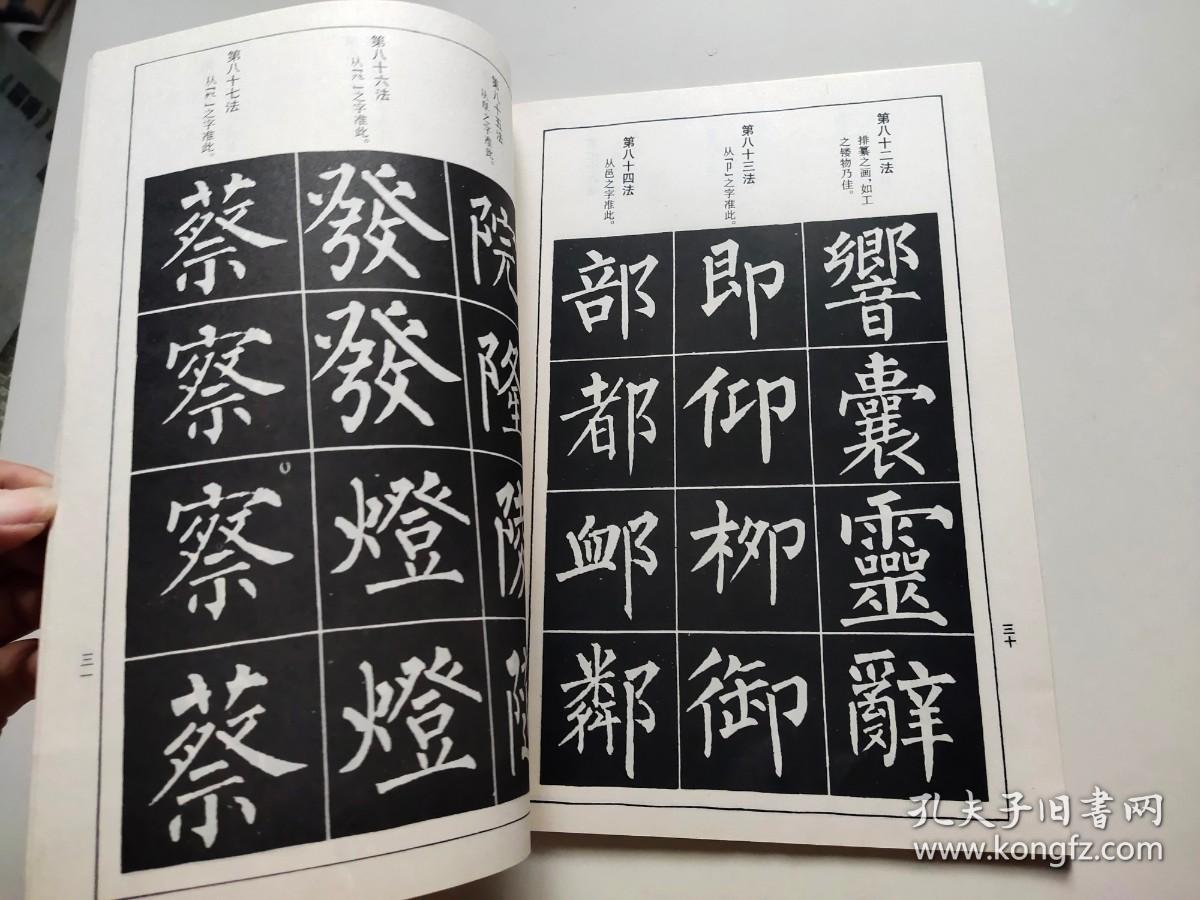 第八十二法
排纂之画，如工
之镂物乃佳。
響
囊
靈
辭
第八十三法
从「卩」之字准此。
即
仰
柳
御
第八十四法
从邑之字准此。
部
都
卹
鄰
三十
第八十五法
之字准此。
院
隆
陵
第八十六法
从「癶」之字准此。
發
發
燈
燈
第八十七法
之字准此。
蔡
察
察
蔡
三一
孔夫子旧书网
www.kongfz.com